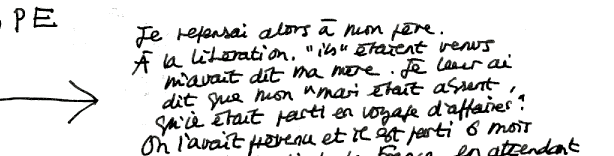 , PE
Je repensai alors à mon père.
À la libération, "ils" étaient venus
m'avait dit ma mère. Je leur ai
dit que mon "mari était absent,
qu'il était parti en voyage d'affaires!
On l'avait prévenu et il est parti 6 mois
en attendant